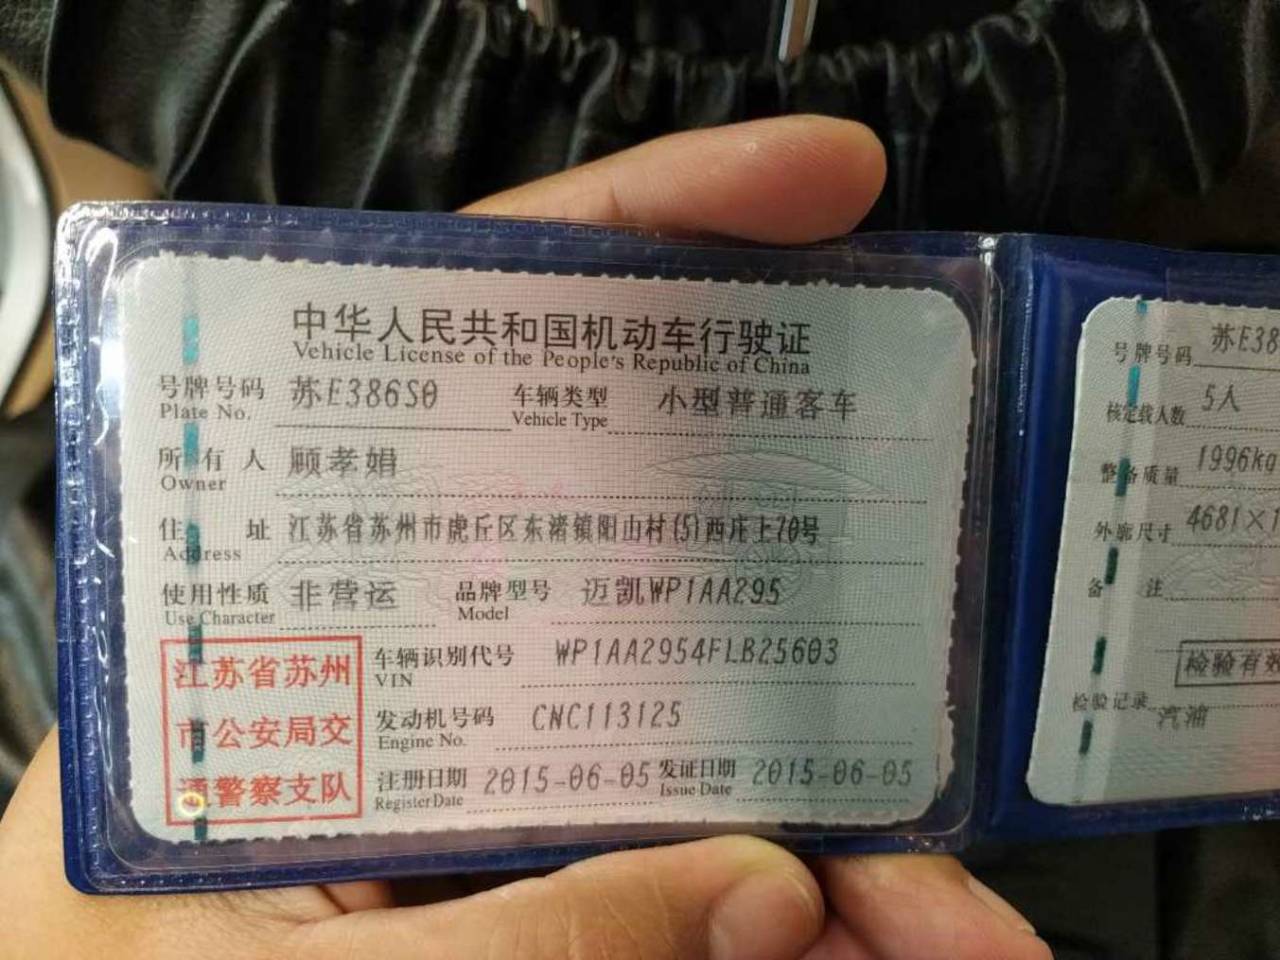 中华人民共和国机动车行驶证
Vehicle License of the People's Republic of China
号牌号码 苏E386S0 车辆类型 小型普通客车
Plate No. Vehicle Type
所有人 顾孝娟
Owner
住址 江苏省苏州市虎丘区东渚镇阳山村(5)西庄上70号
Address
使用性质 非营运 品牌型号 迈凯WP1AA295
Use Character Model
车辆识别代号 WP1AA2954FLB25603
VIN
发动机号码 CNC113125
Engine No.
注册日期 2015-06-05 发证日期 2015-06-05
Register Date Issue Date
江苏省苏州
市公安局交
通警察支队
号牌号码 苏E38
核定载人数 5人
整备质量 1996kg
外廓尺寸 4681×1
备注
检验有效
检验记录
汽油